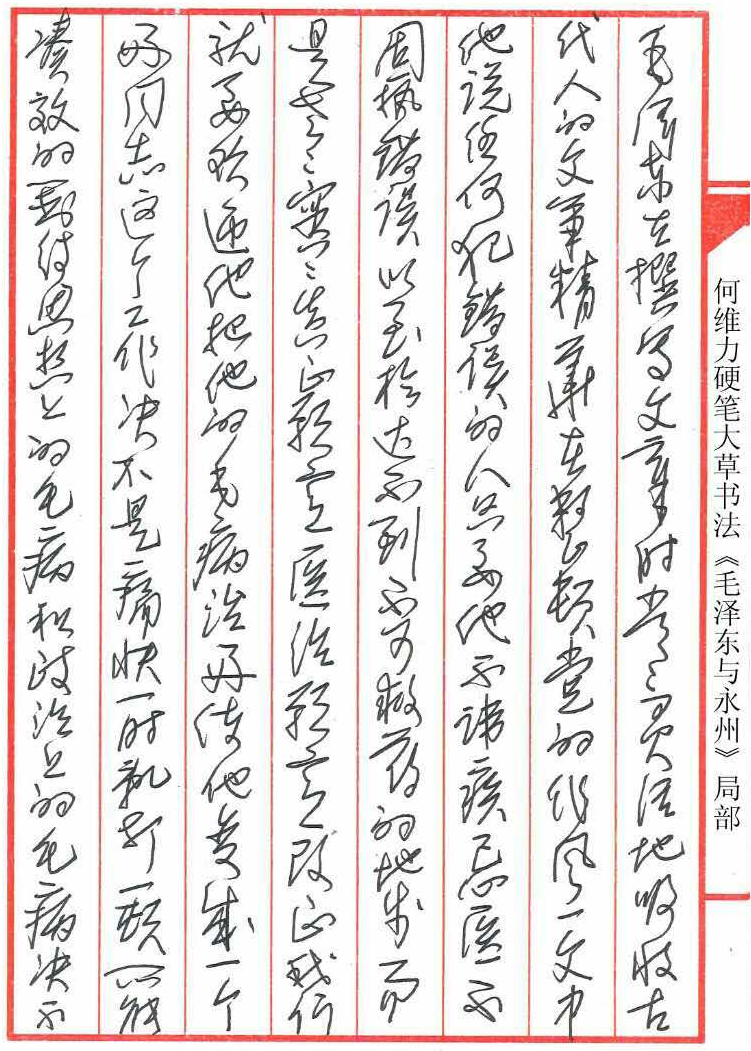 毛泽东在撰写文章时常常灵活地吸收古
代人的文章精华在整顿党的作风一文中
他说任何犯错误的人只要他不讳疾忌医不
固执错误以至於达不到不可救药的地步而
是老老实实真正愿意医治愿意改正我们
就要欢迎他把他的毛病治好使他变成一个
好同志这个工作决不是痛快一时乱打一顿所能
凑效的对待思想上的毛病和政治上的毛病决不
何维力硬笔大草书法《毛泽东与永州》局部